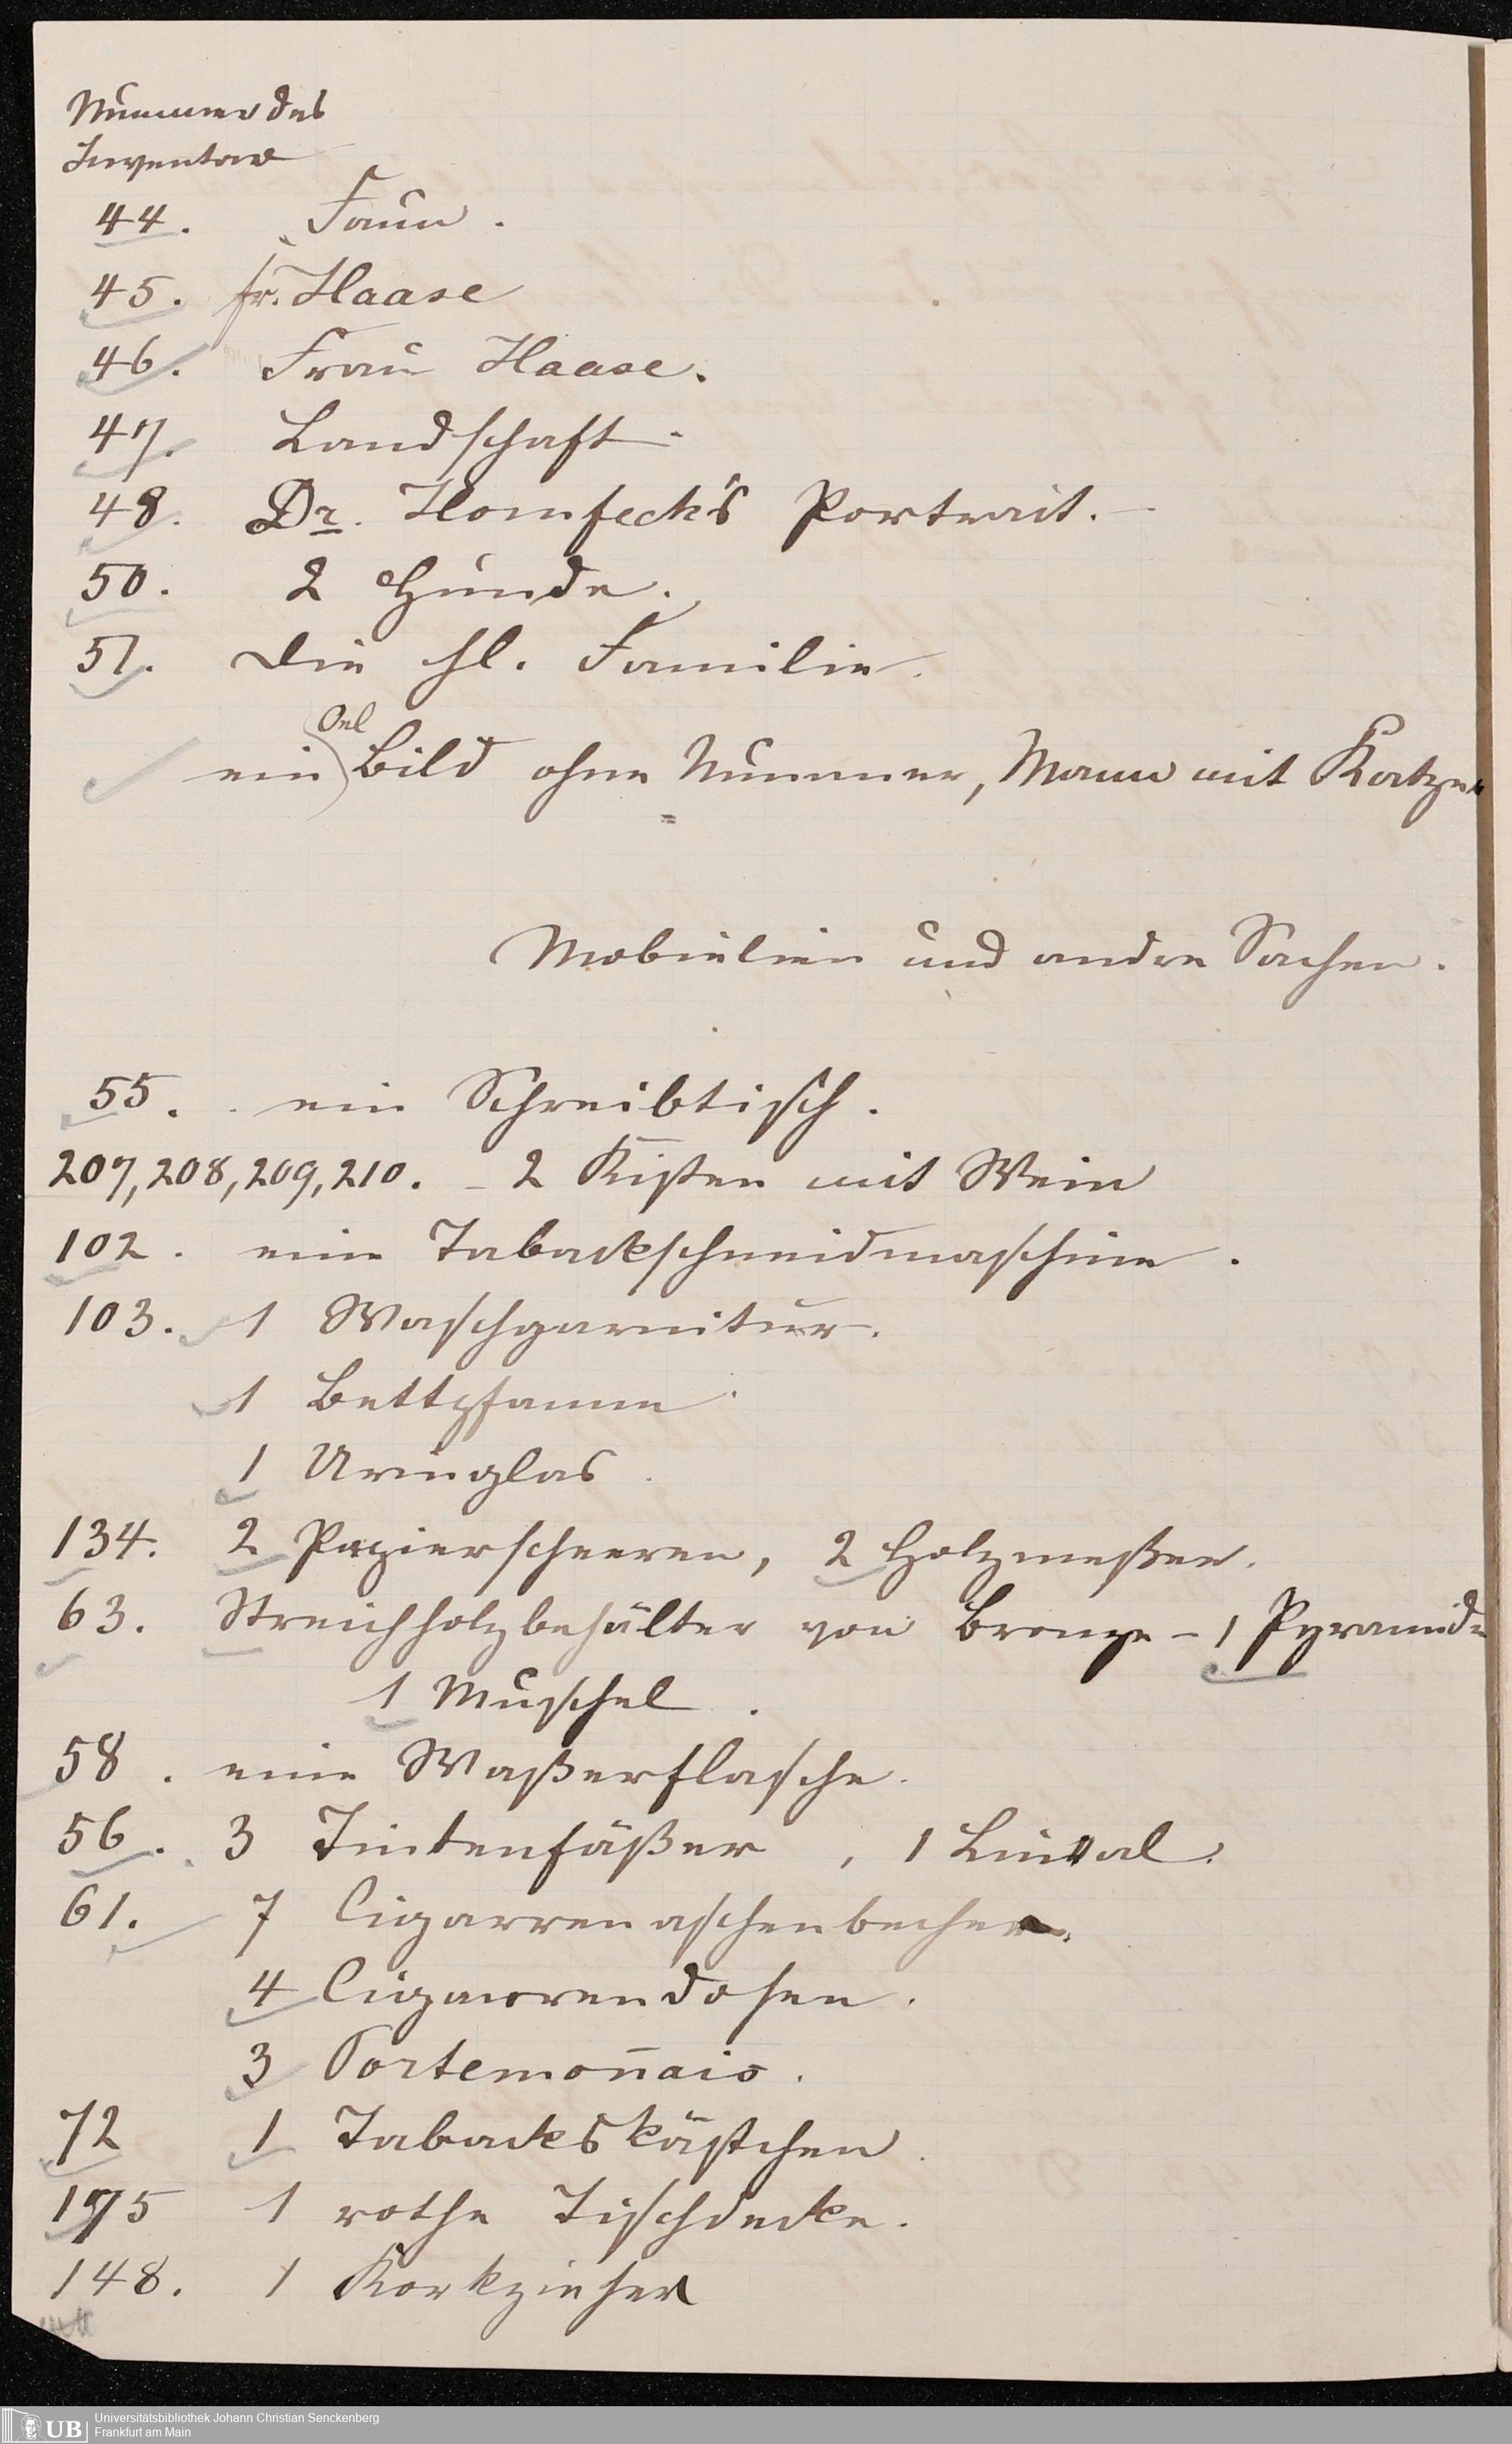 Nummer des
Inventar
44. Faun.
45. fr. Haase
46. Frau Haase.
47. Landschaft
48. Dr. Hornfeck's Portrait.
50. 2 Hunde.
51. Die hl. Familie.
Oel
ein Bild ohne Nummer, Mann mit Katzen
Mobielien und andre Sachen.
55. ein Schreibtisch.
207, 208, 209, 210. – 2 Kisten mit Wein
102. eine Tabackschneidmaschine.
103. 1 Waschgarnitur.
1 Bettpfanne
1 Uringlas.
134. 2 Papierscheeren, 2 Holzmeßer.
63. Streichholzbehälter von Bronze – 1 Pyramide
1 Muschel.
58. eine Waßerflasche.
56. 3 Tintenfäßer, 1 Lineal.
61. 7 Cigarrenaschenbecher.
4 Cigarrendosen.
3 Portemon̄ais.
72 1 Tabackskästchen.
175 1 rothe Tischdecke.
148. 1 Korkzieher
UB
Universitätsbibliothek Johann Christian Senckenberg
Frankfurt am Main